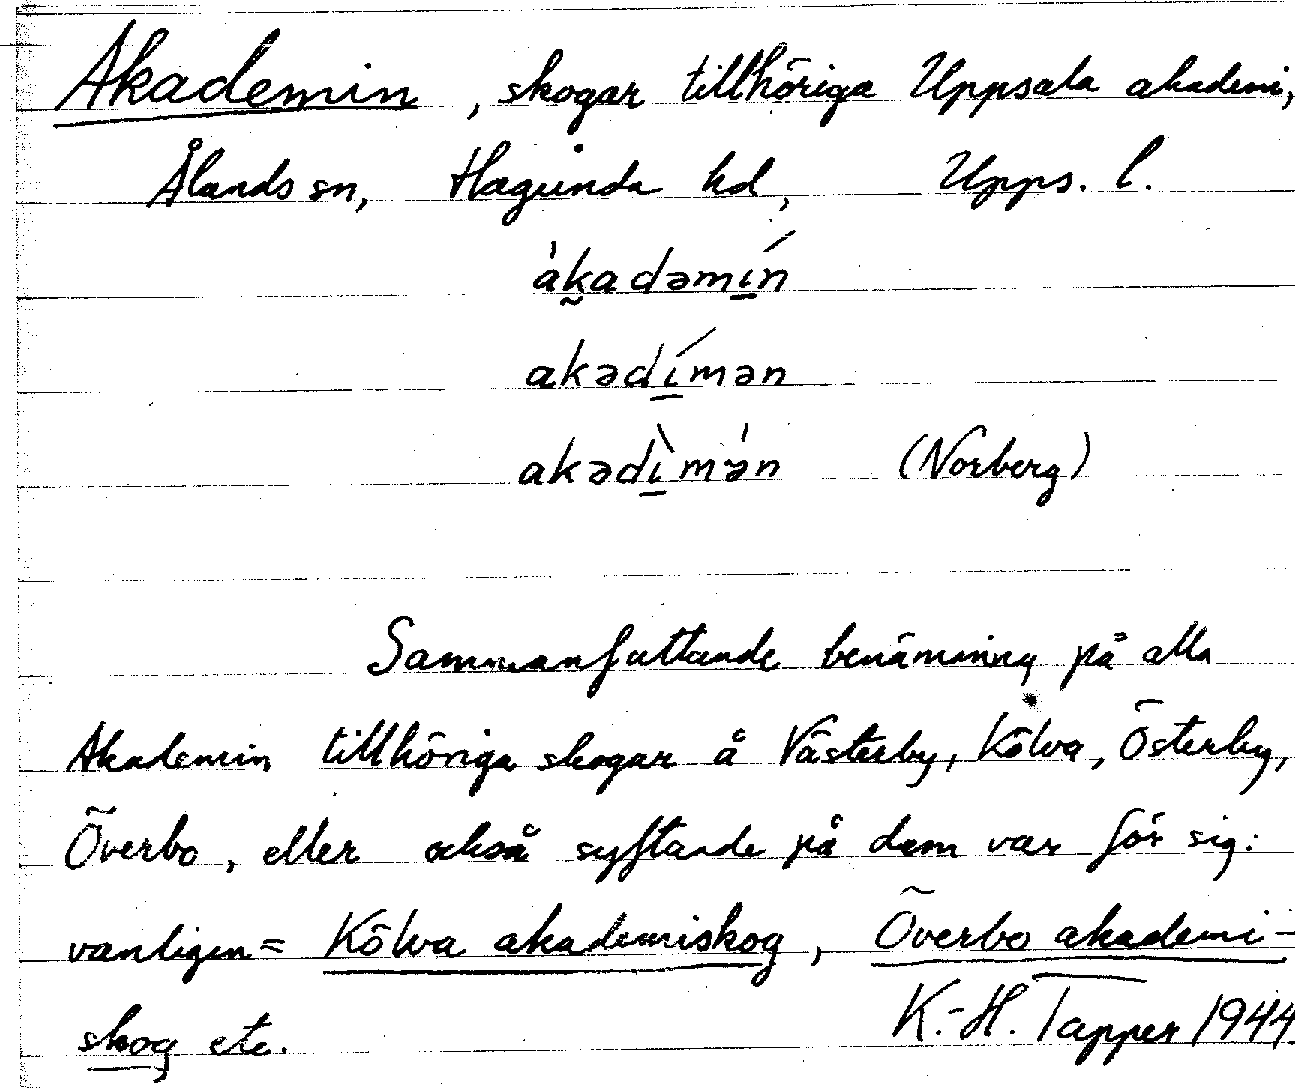 Akademin, skogar tillhöriga Uppsala akademi,
Ålands sn, Hagunda hd, Upps. l.
àkadəmi̱ń
akədí̱mən
akədì̱mə̀n (Norberg)
Sammanfattande benämning på alla
Akademin tillhöriga skogar å Västerby, Kölva, Österby,
Överbo, eller också syftande på dem var för sig:
vanligen = Kölva akademiskog, Överbo akademi-
skog etc. K.-H. Tapper 1944.